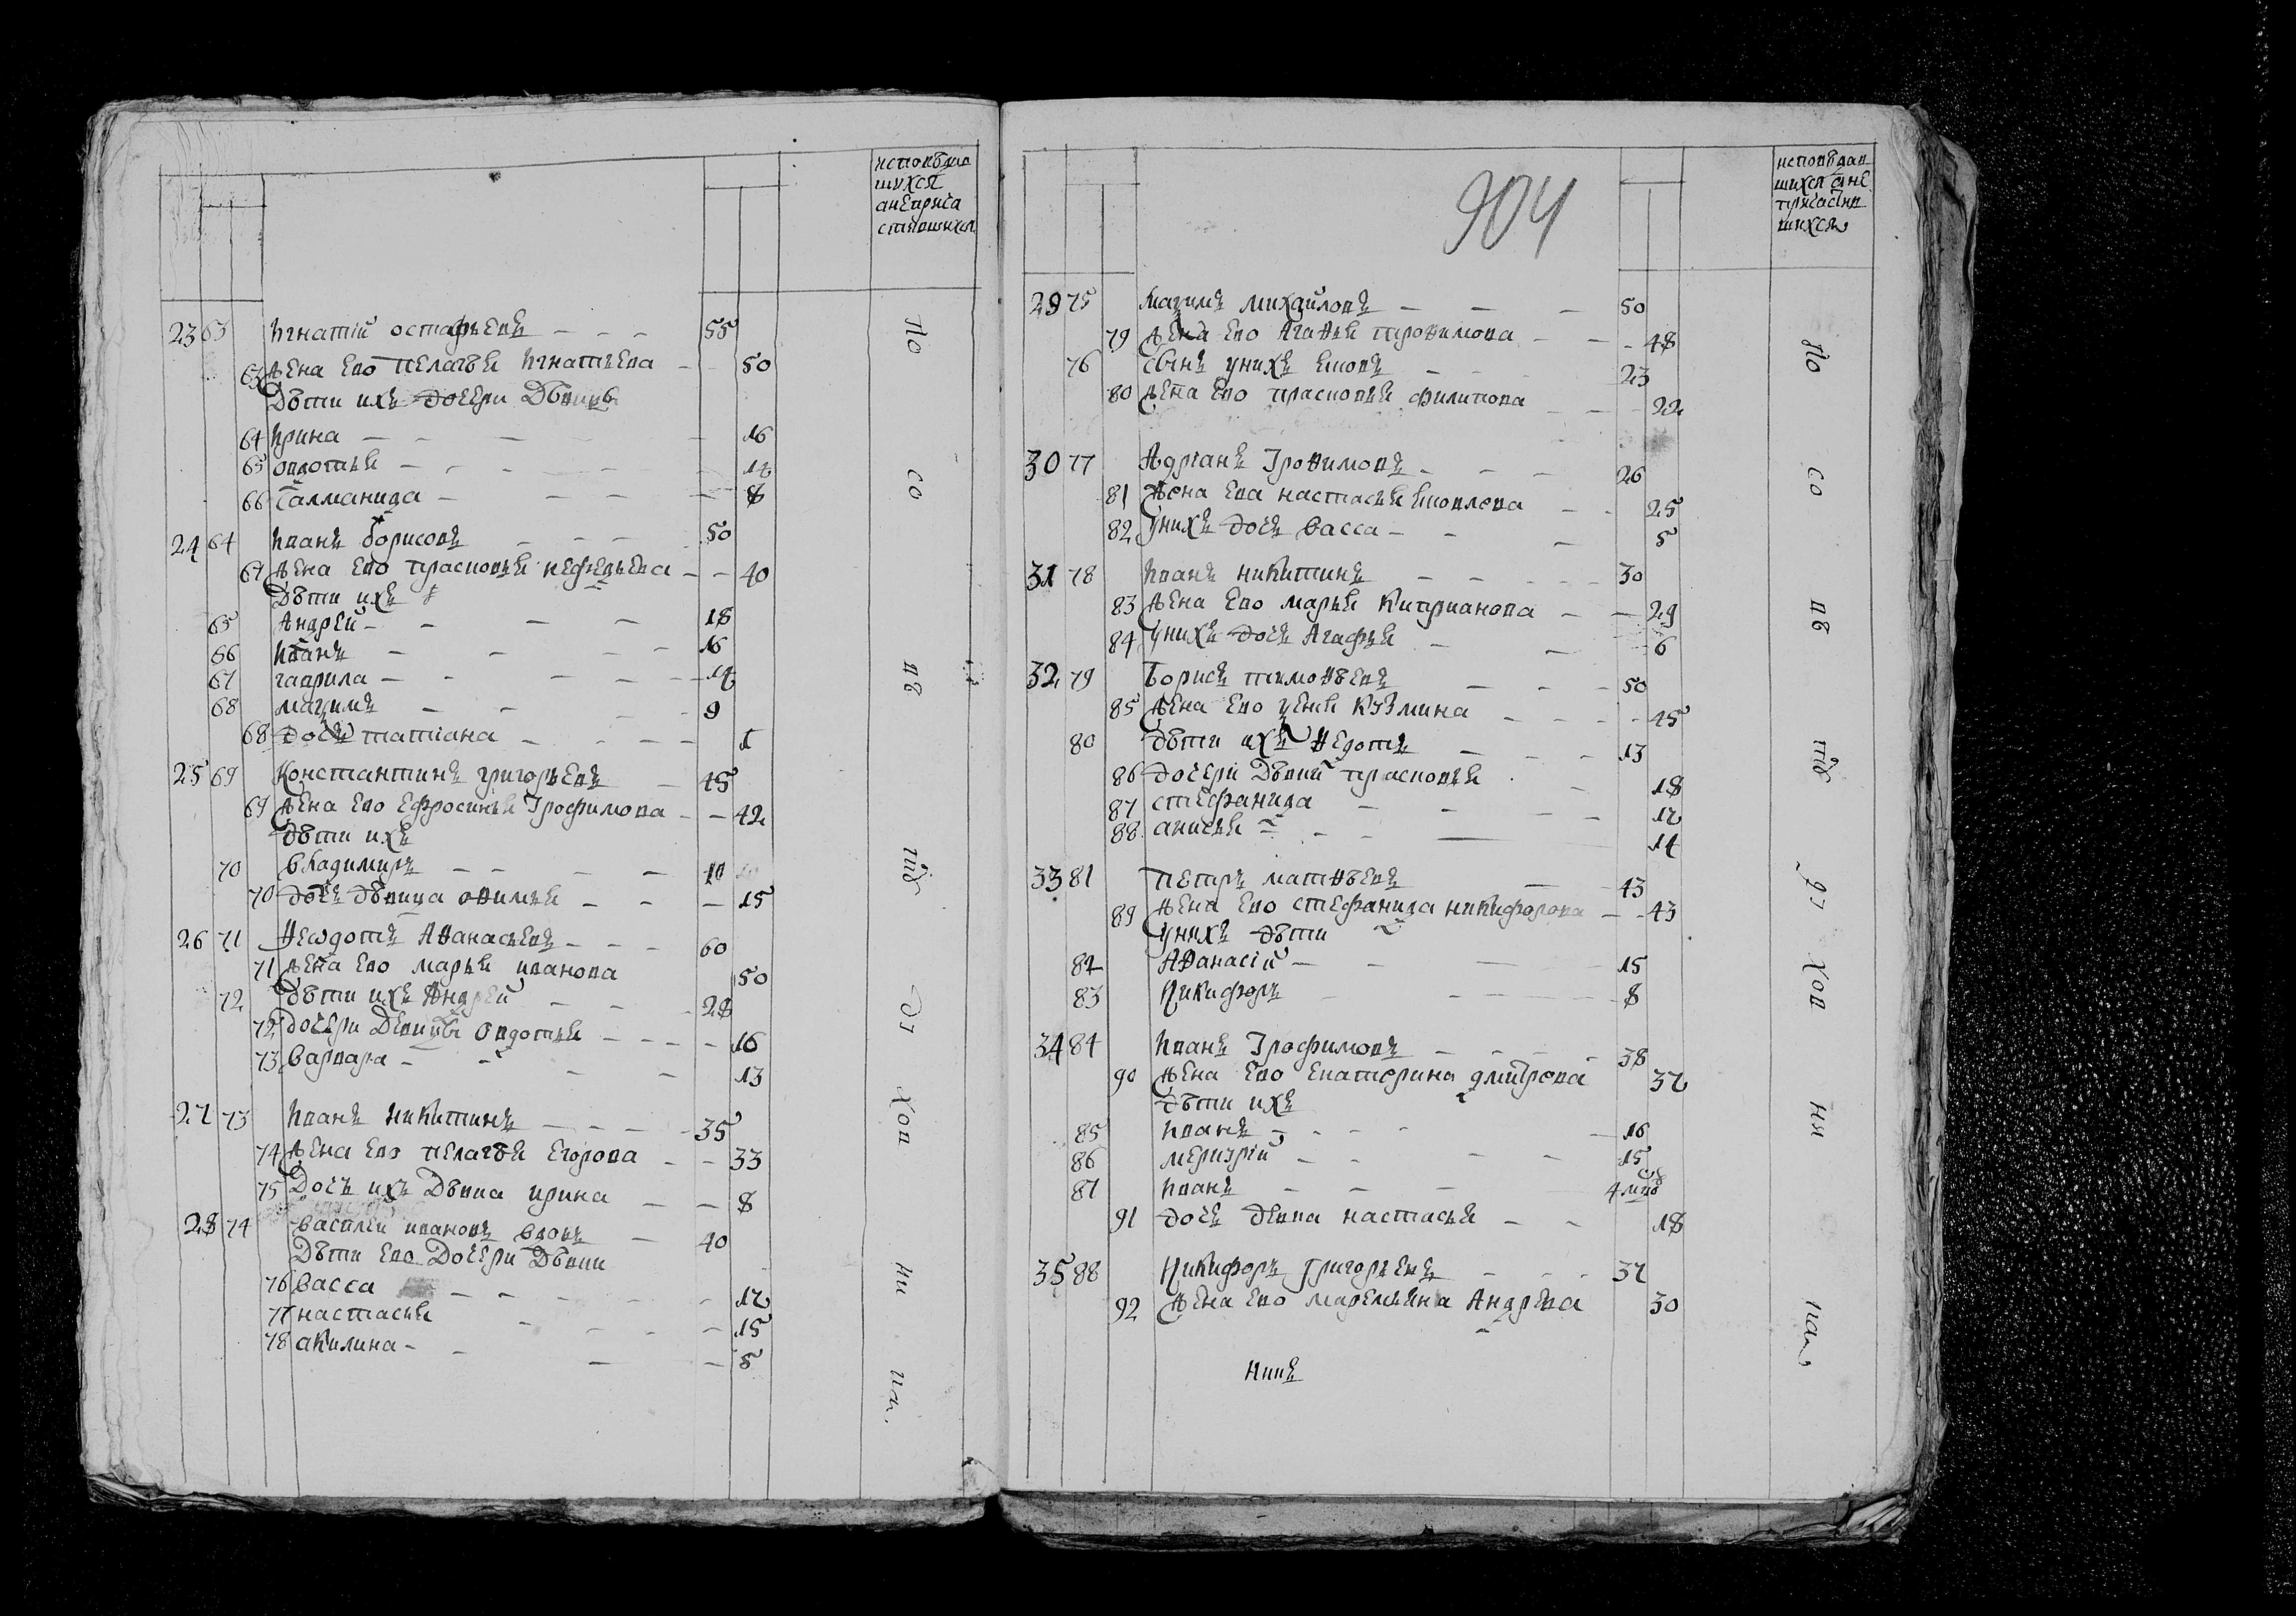 исповѣдав
шихся
анеприча
стившихся
23 63 Игнатій остафьевъ 55
63 жена ево пелагѣя Игнатьева 50
Дѣти ихъ дочери Дѣвицы
64 Ирина 16
65 овдотья 14
66 8
24 64 Иванъ борисовъ 50
67 жена ево прасковья нефедьева 40
Дѣти ихъ
65 Андрей 18
66 Иванъ 16
67 гаврила 14
68 маѯимъ 9
68 дочь татіана 1
25 69 Константинъ григорьевъ 45
69 жена ево Ефросинья Трофимова 42
дѣти ихъ
70 владимиръ 10
70 дочь дѣвица овимья 15
26 71 Ѳеѡдотъ Аѳанасьевъ 60
71 жена ево марья иванова 50
72 дѣти ихъ Андрей 28
72 дочери Девицы Овдотья 16
73 варвара 13
27 73 Иванъ Никитинъ 35
74 жена ево пелагѣя Егорова 33
75 Дочь ихъ Дѣвица ирина 8
28 74 василей ивановъ вдовъ 40
Дѣти ево Дочери Дѣвки
76 васса 17
77 настасья 15
78 акилина 5
По со цв тѣ дꙋ хов ни ки
904
исповѣдав
шихся ане
причастив
шихся
29 75 Маѯимъ михайловъ 50
79 жена ево Агаѳья троѳимова 48
76 сынъ унихъ 23
80 жена ево прасковья филипова 22
30 77 Адріанъ Троѳимовъ 26
81 жена ева настасья 25
82 унихъ дочь васса 5
31 78 Иванъ никитинъ 30
83 жена ево марья Киприанова 29
84 унихъ дочь Агафья 6
32 79 Борисъ тимоѳѣевъ 50
85 жена ево Кузмина 45
80 дѣти ихъ Ѳедотъ 13
86 дочери Дѣвки прасковья 18
87 стефанида 17
88 анисья 14
33 81 петръ матѳѣевъ 43
89 жена ево стефанида никифорова 43
унихъ дѣти
82 Аѳанасій 15
83 Никифоръ 8
34 84 Иванъ Трофимовъ 38
90 жена ево Екатерина дмитрева 37
дѣти ихъ
85 Иванъ 16
86 меркурій 15
87 Иванъ 4
91 дочь дѣвка настасья 18
35 88 Никифоръ григорьевъ 37
92 жена ево маремьяна Андрѣва 30